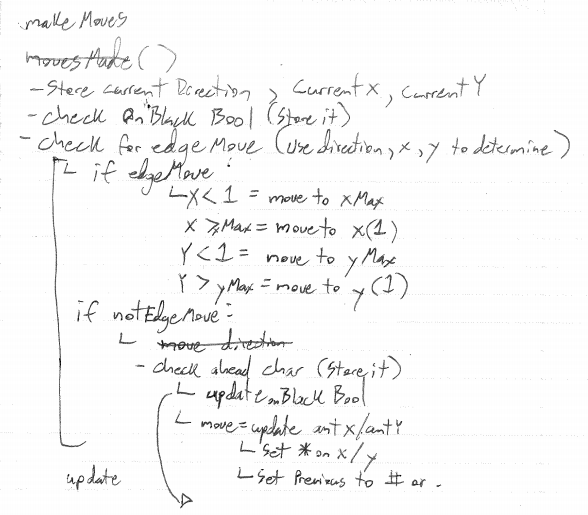 makeMoves
movesMade()
- Store current Direction, Currentx, CurrentY
- check on Black Bool (Store it)
- check for edgeMove (use direction, x, y to determine)
if edgeMove:
X < 1 = move to xMax
X > xMax = move to x(1)
Y < 1 = move to yMax
Y > yMax = move to y(1)
if notEdgeMove:
move direction
- check ahead char (Store it)
update onBlack Bool
move = update antX/antY
Set * on x/y
Set Previous to # or .
update